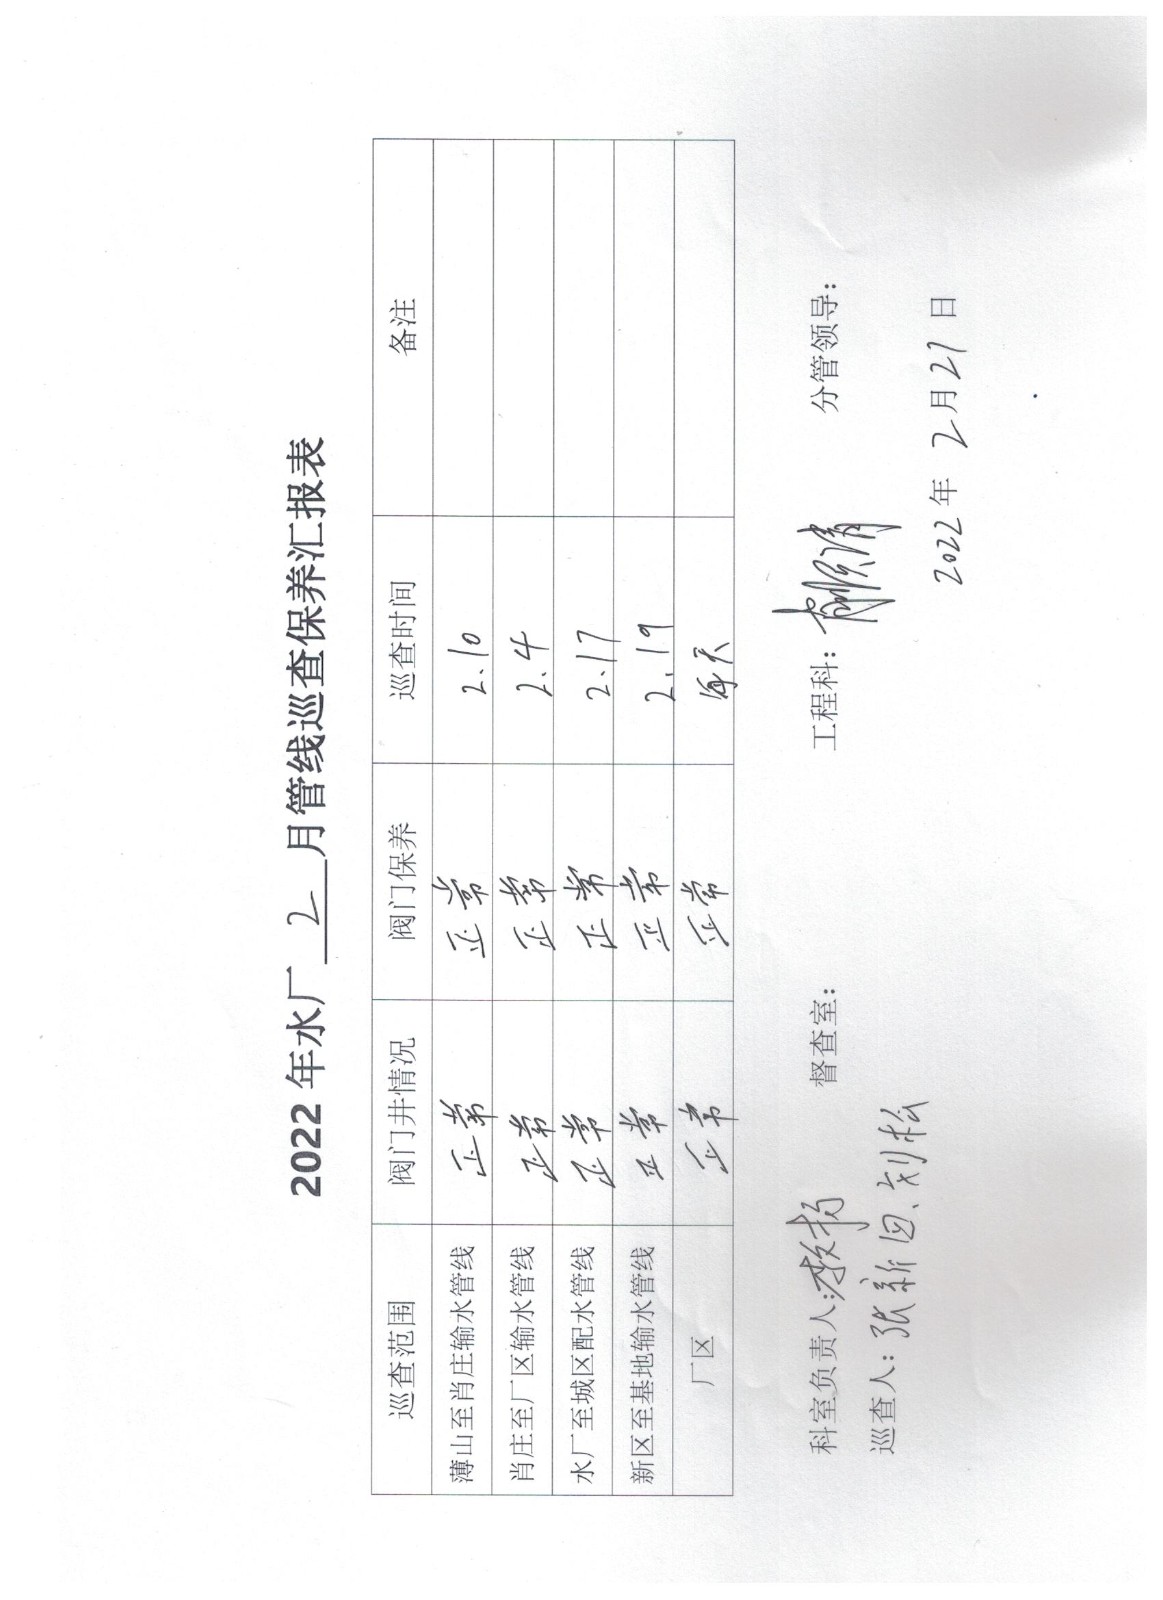 2022 年水厂 2 月管线巡查保养汇报表
巡查范围 阀门井情况 阀门保养 巡查时间 备注
薄山至肖庄输水管线 正常 正常 2.10
肖庄至厂区输水管线 正常 正常 2.4
水厂至城区配水管线 正常 正常 2.17
新区至基地输水管线 正常 正常 2.19
厂区 正常 正常 每天
科室负责人: 督查室: 工程科: 分管领导:
巡查人: 张新 刘松
2022 年 2 月 21 日